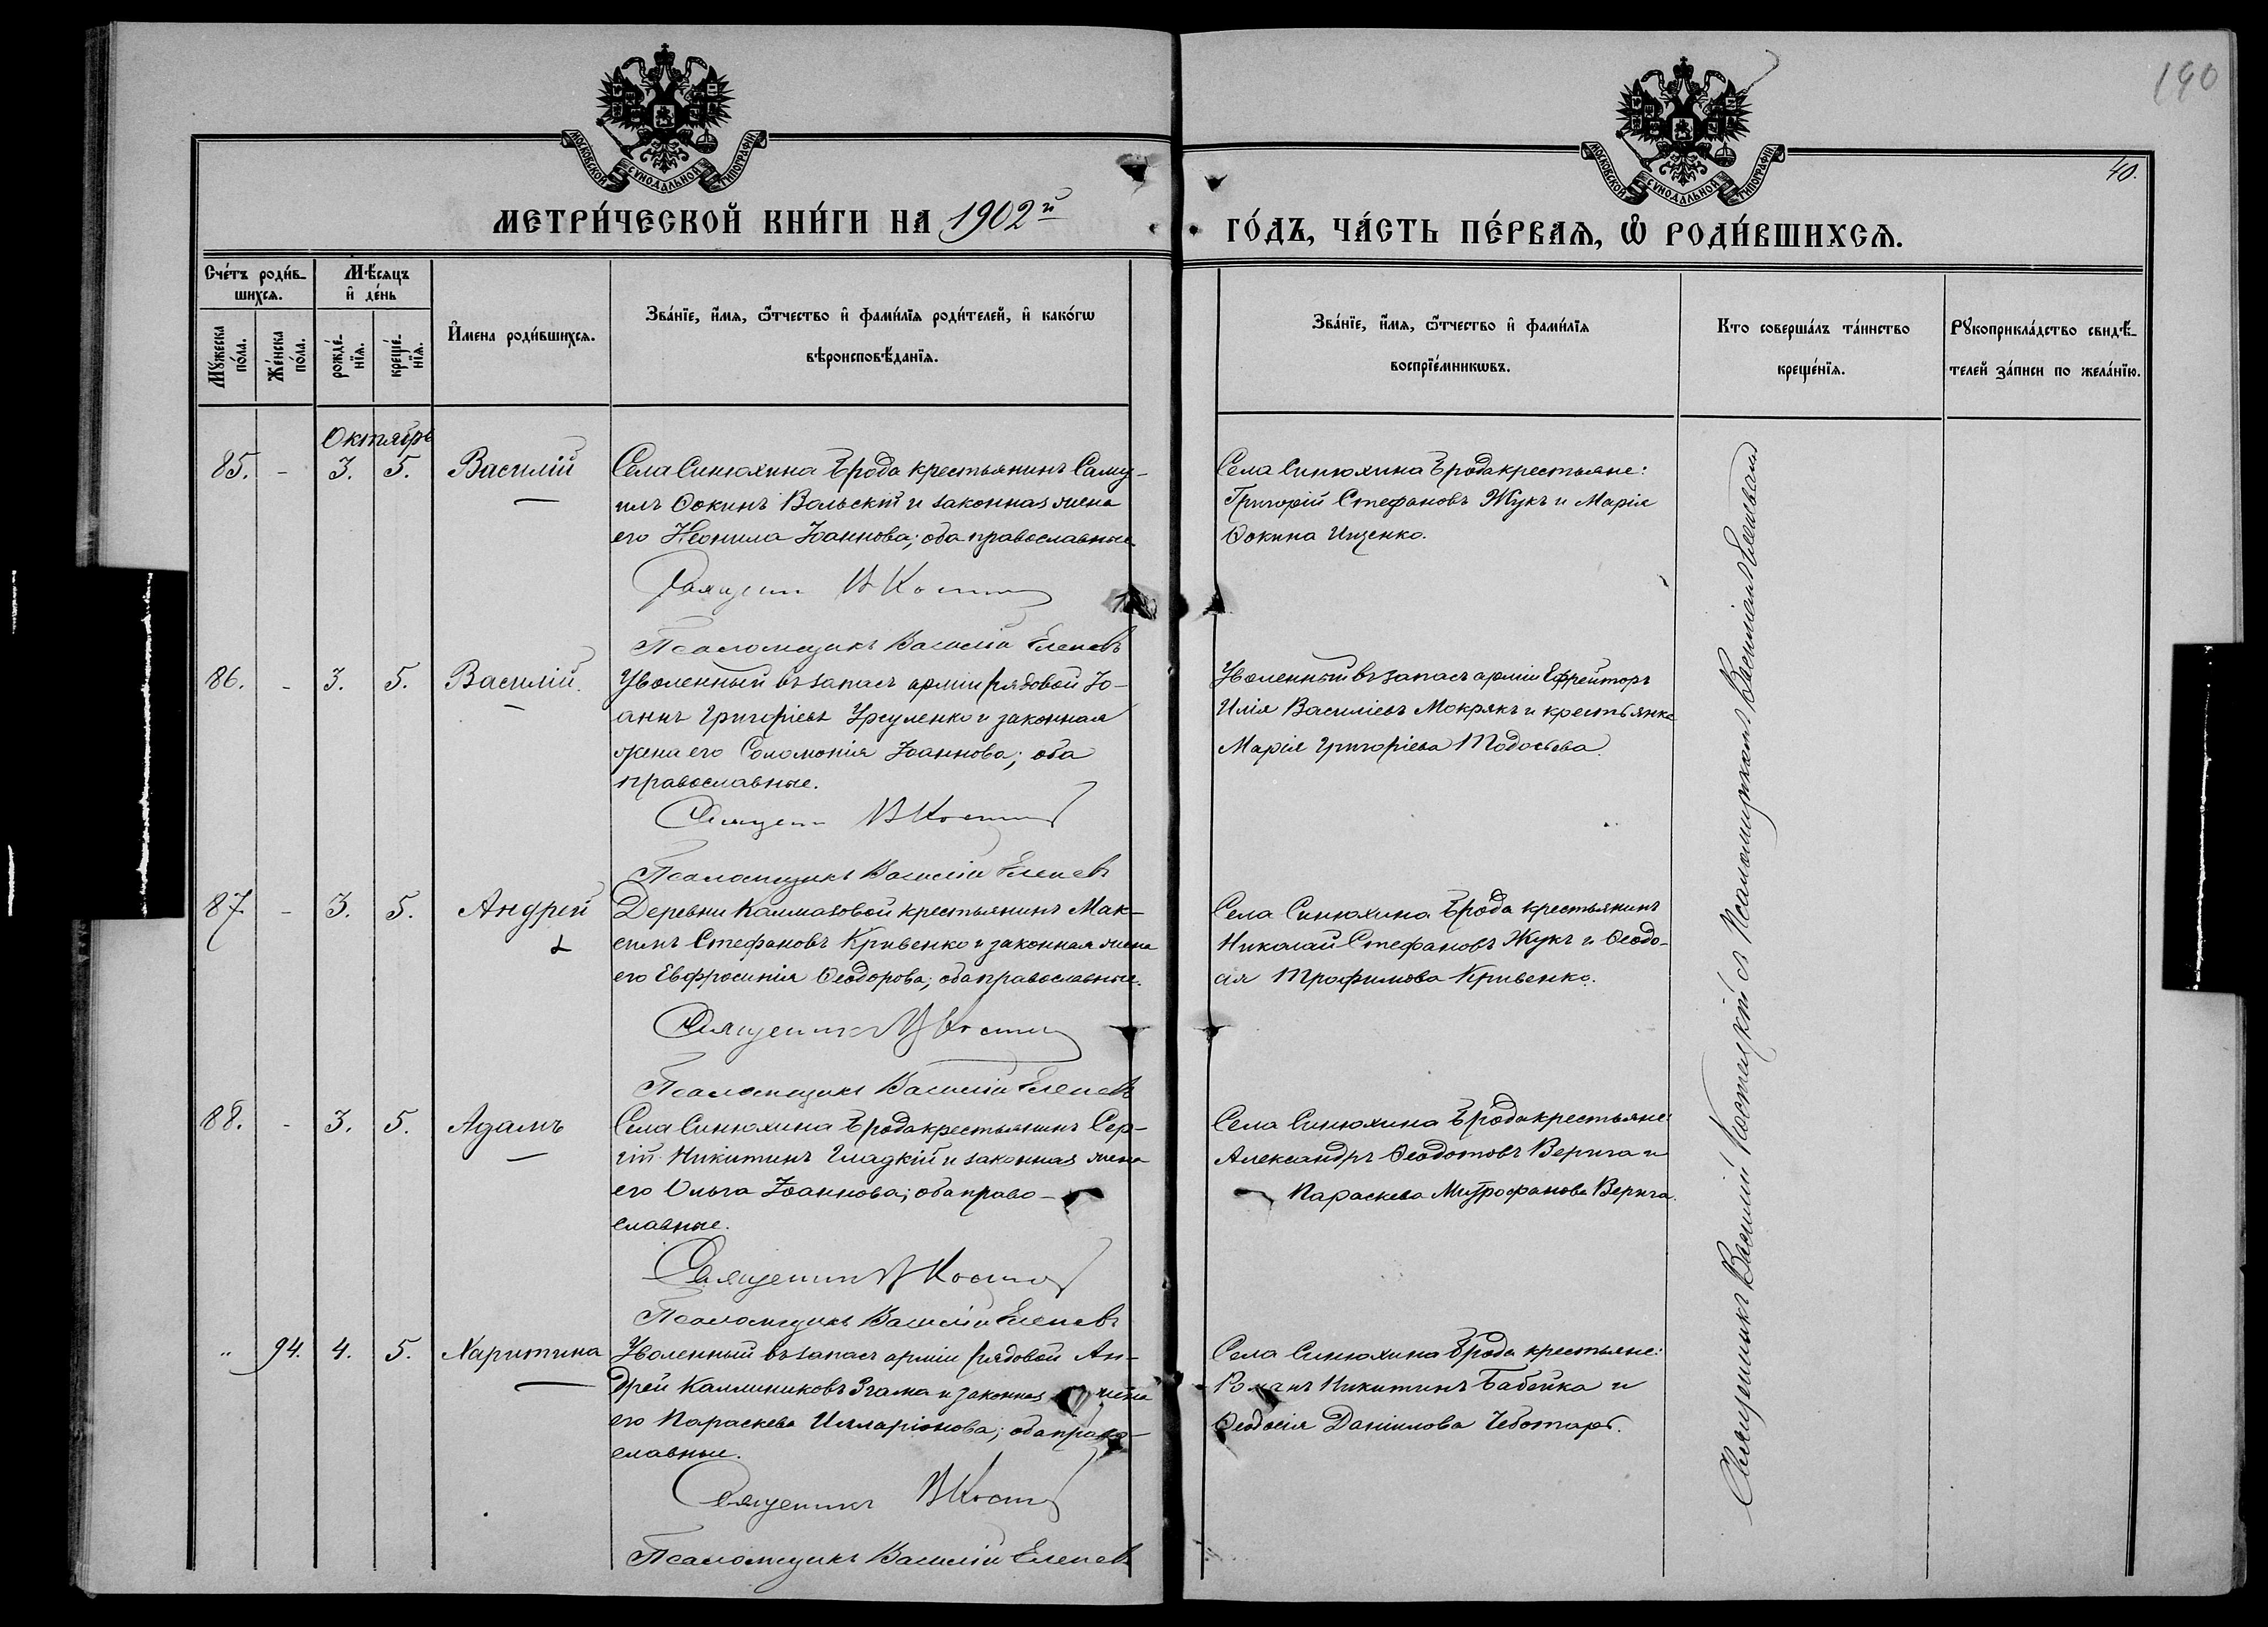 190
40.
МОСКОВСКОЙ СѴНОДАЛЬНОЙ ТИПОГРАФІИ
МОСКОВСКОЙ СѴНОДАЛЬНОЙ ТИПОГРАФІИ
МЕТРИ́ЧЕСКОЙ КНИ́ГИ НА 1902й
ГО́ДЪ, ЧА́СТЬ ПЕ́РВАѦ, Ѡ҆ РОДИ́ВШИХСѦ.
Сче́тъ роди́в-
шихсѧ.
Мꙋ́жеска по́ла.
Же́нска по́ла.
Мѣ́сѧцъ
и҆ де́нь
рожде́-
нїѧ.
креще́-
нїѧ.
И҆мена роди́вшихсѧ.
Зва́нїе, и҆́мѧ, ѻ҆́тчество и҆ фами́лїѧ роди́телей, и҆ како́гѡ
вѣроисповѣ́данїѧ.
Зва́нїе, и҆́мѧ, ѻ҆́тчество и҆ фами́лїѧ
воспрїе́мникѡвъ.
Кто соверша́лъ та́инство
креще́нїѧ.
Рꙋкоприкла́дство свидѣ́-
телей за́писи по жела́нїю.
Октябрь
85. - 3. 5. Василій
Села Синюхина Брода крестьянинъ Саму-
илъ Ѳокинъ Вольскій и законная жена
его Неонила Іоаннова; оба православные
Священ В Кост
Псаломщикъ Василій Еленевъ
Села Синюхина Брода крестьяне:
Григорій Стефановъ Жукъ и Марія
Ѳокина Ищенко.
86. - 3. 5. Василій.
Уволенный въ запасъ арміи рядовой Іо-
аннъ Григоріевъ Урсуленко и законная
жена его Соломонія Іоаннова; оба
православные.
Священ В Кост
Псаломщикъ Василій Еленевъ
Уволенный въ запасъ арміи Ефрейторъ
Илія Василіевъ Мокрякъ и крестьянка
Марія Григоріева Тодосьева.
87 - 3. 5. Андрей
Деревни Калмазовой крестьянинъ Мак-
симъ Стефановъ Кривенко и законная жена
его Евфросинія Ѳеодорова; оба православные.
Священник В Кост
Псаломщикъ Василій Еленевъ
Села Синюхина Брода крестьянинъ
Николай Стефановъ Жукъ и Ѳеодо-
ія Трофимова Кривенко.
88. - 3. 5. Адамъ
Села Синюхина Брода крестьянинъ Сер-
гій Никитинъ Гладкій и законная жена
его Ольга Іоаннова; оба право-
славные.
Священник В Кост
Псаломщикъ Василій Еленевъ
Села Синюхина Брода крестьяне:
Александръ Ѳеодотовъ Верига и
Параскева Митрофанова Верига.
" 94. 4. 5. Харитина
Уволенный въ запасъ арміи рядовой Ан-
дрей Каллиниковъ Згама и законная жена
его Параскева Илларіонова; оба право-
славные.
Священникъ В Кост
Псаломщикъ Василій Еленевъ
Села Синюхина Брода крестьяне:
Романъ Никитинъ Бабейка и
Ѳеодосія Даніилова Чеботарь.
Священникъ Василій Костецкій съ Псаломщикомъ Василіемъ Елепевымъ